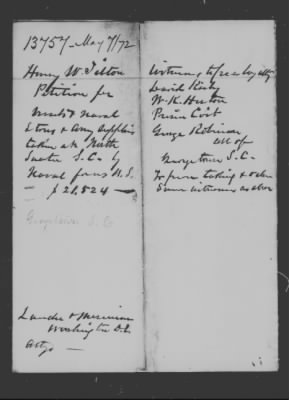 13757 May 7/72
Henry W. Tilton
Petition for
Naval
Stores & Army Supplies
taken at North
Santee S.C. by
Naval forces U.S.
— $ 21,524 —
Georgetown S.C.
Washington D.C.
Attys —
Witnesses to
David Risley
W. K. Heston
George Robinson
all of
Georgetown S.C.
To prove taking &
Same witnesses as above